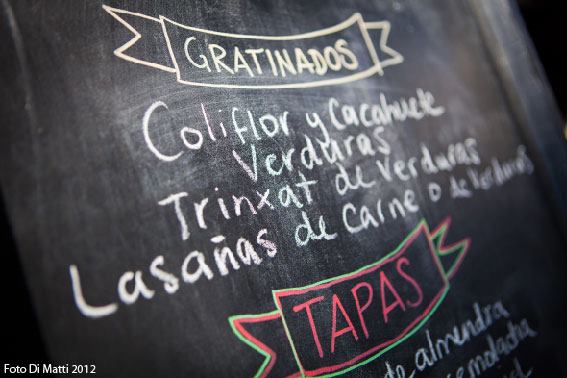 GRATINADOS
Coliflor y Cacahuete
Verduras
Trinxat de verduras
Lasañas de Carne o de Verduras
TAPAS
de almendra
Foto Di Matti 2012